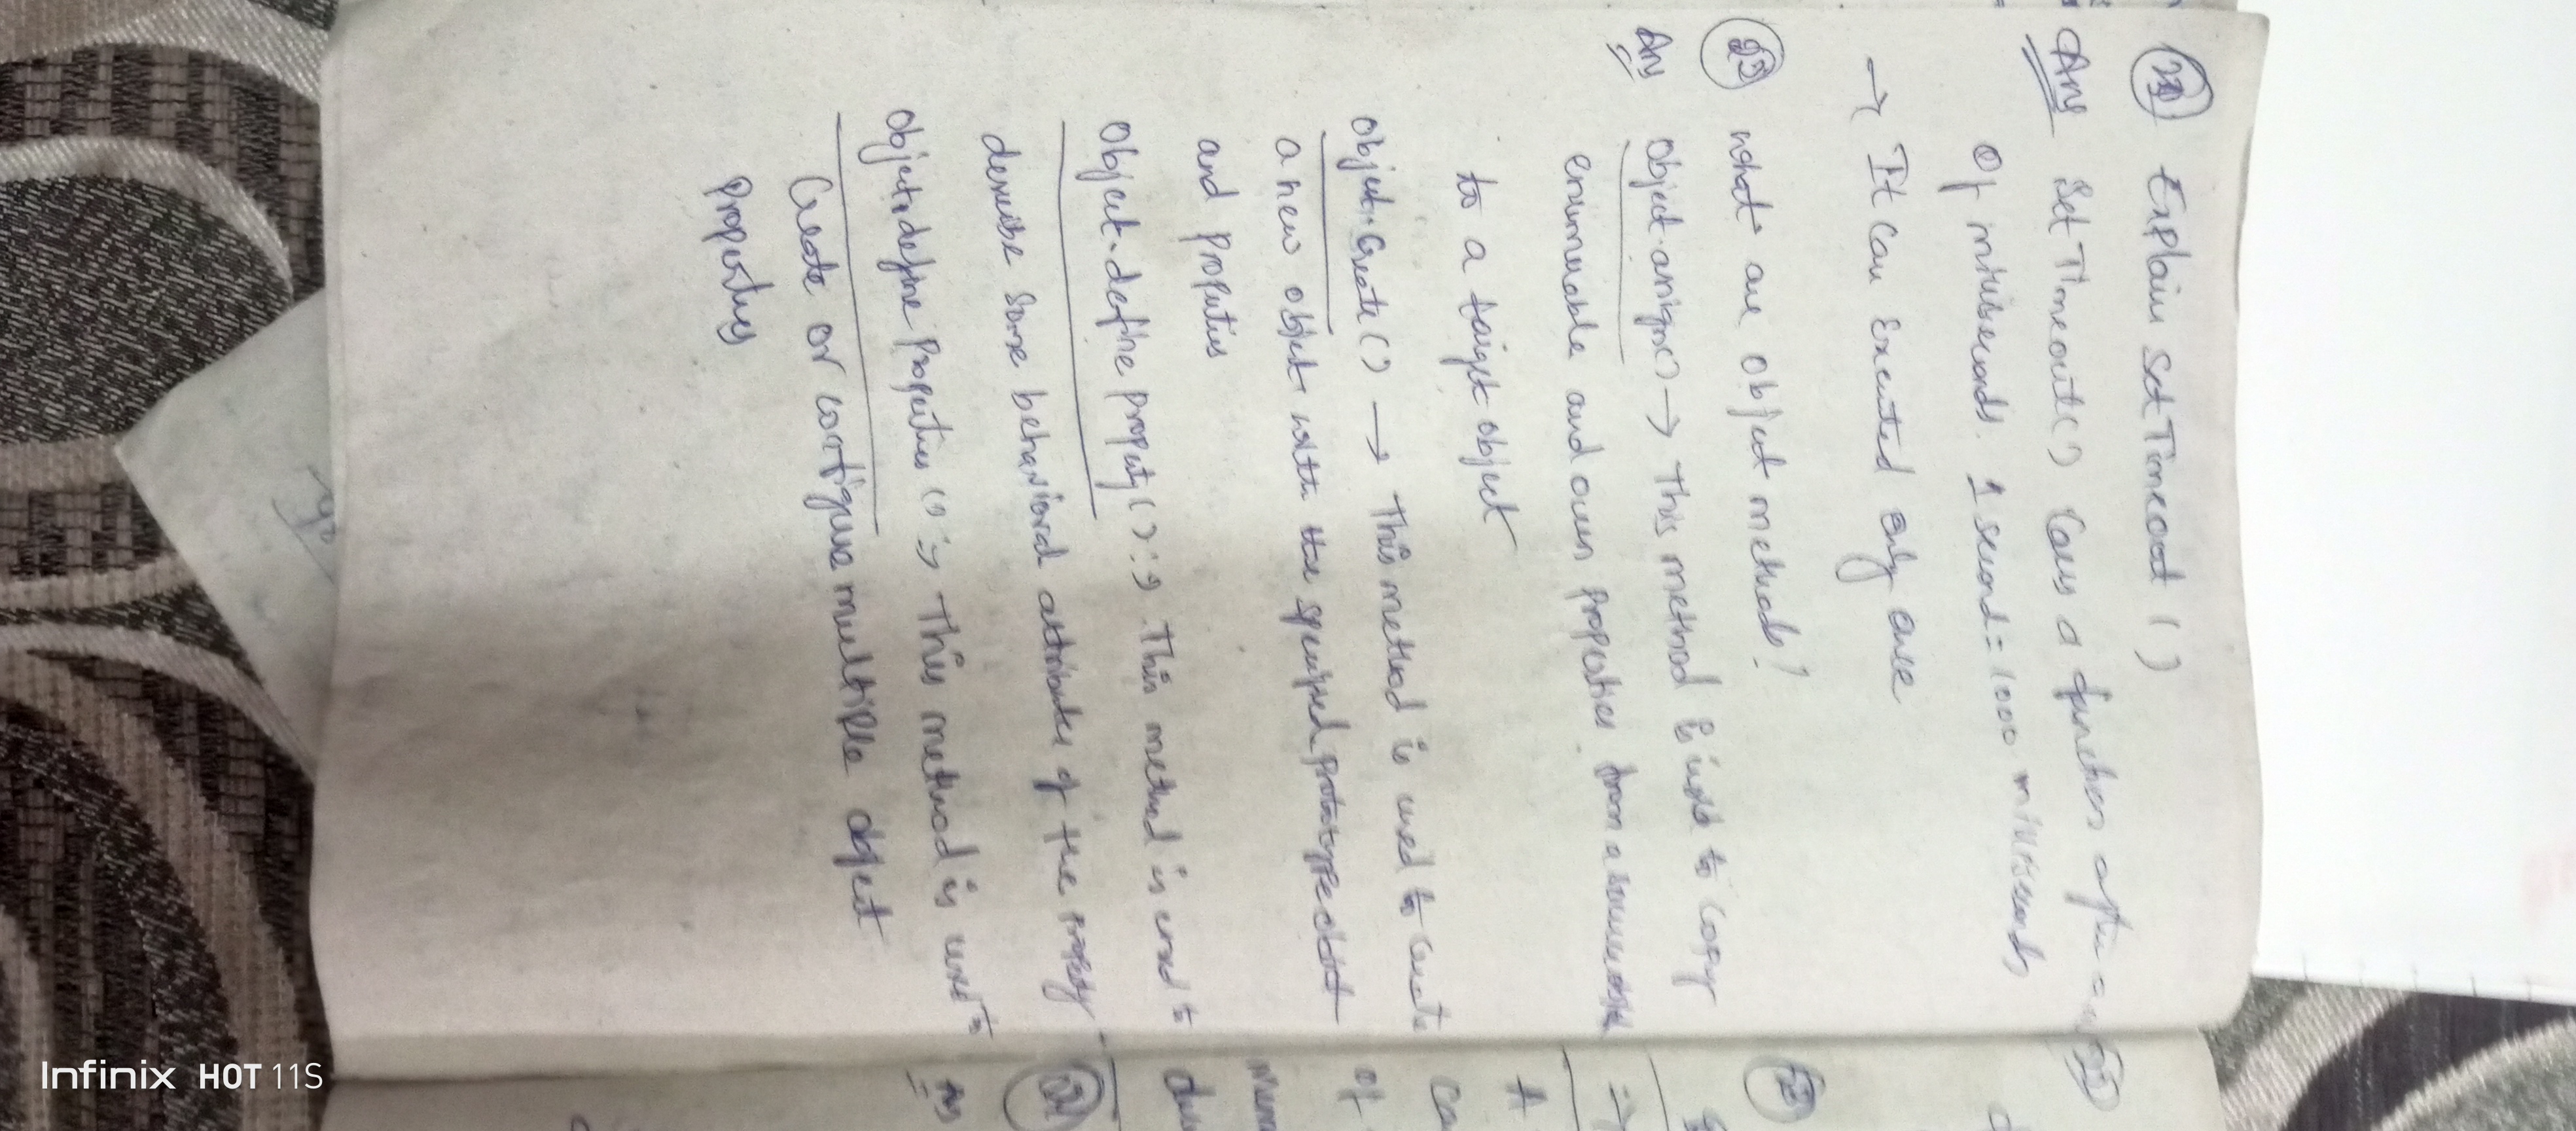 Explain SetTimeout ()
Ans SetTimeout() Calls a function after a
Of miliseconds. 1 second = 1000 milliseconds
→ It Can Executed only once
25 what are object methods?
Ans object.assign() → This method is used to copy
enumerable and own properties from a source
to a target object
object.create() → This method is used to create
a new object with the specified prototype object
and properties
object.define property() :→ This method is used to
describe some behavioral attributes of the property
object.define Properties () :→ This method is used to
Create or configure multiple object
Properties
Infinix HOT 11S